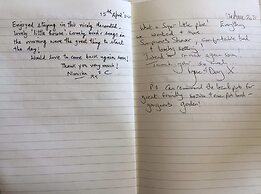 15th April 20
Enjoyed staying in this nicely decorated,
lovely 'little house'. Lovely bird songs in
the morning were the great thing to start
the day!
Would love to come back again soon!
Thank you very much!
Namika
What a Super little place! Everything
wanted & more
Sumptuous Shower, Comfortable bed
& lovely setting
Intend to again soon
Thank you so much
& Doug X
P.S Can recommend the local pub for
great friendly service & super food &
gorgeous garden!